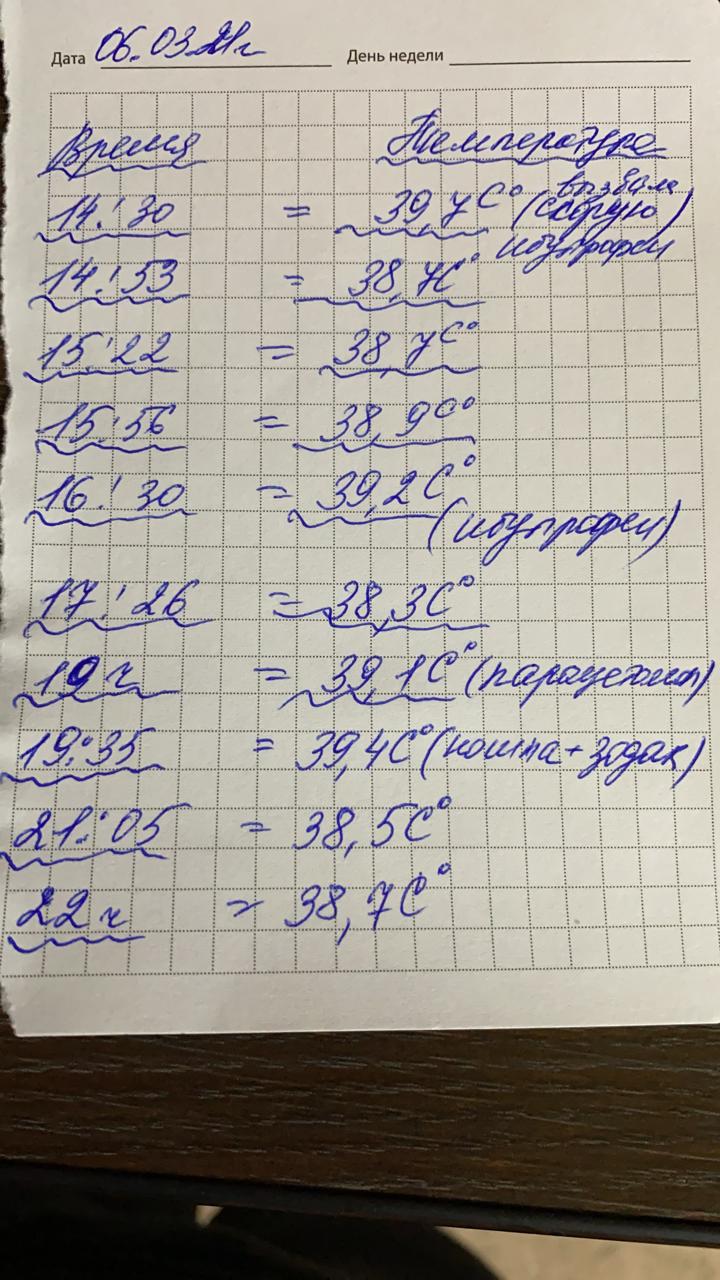 Дата 06.03.21г День недели
Время Температура
14:30 = 39,7 C° (вызвала скорую) ибупрофен
14:53 = 38,7C°
15:22 = 38,7C°
15:56 = 38,9C°
16:30 = 39,2C°
(ибупрофен)
17:26 = 38,3C°
19 ч = 39,1C° (парацетамол)
19:35 = 39,4C° (ношпа+зодак)
21:05 = 38,5C°
22 ч = 38,7C°